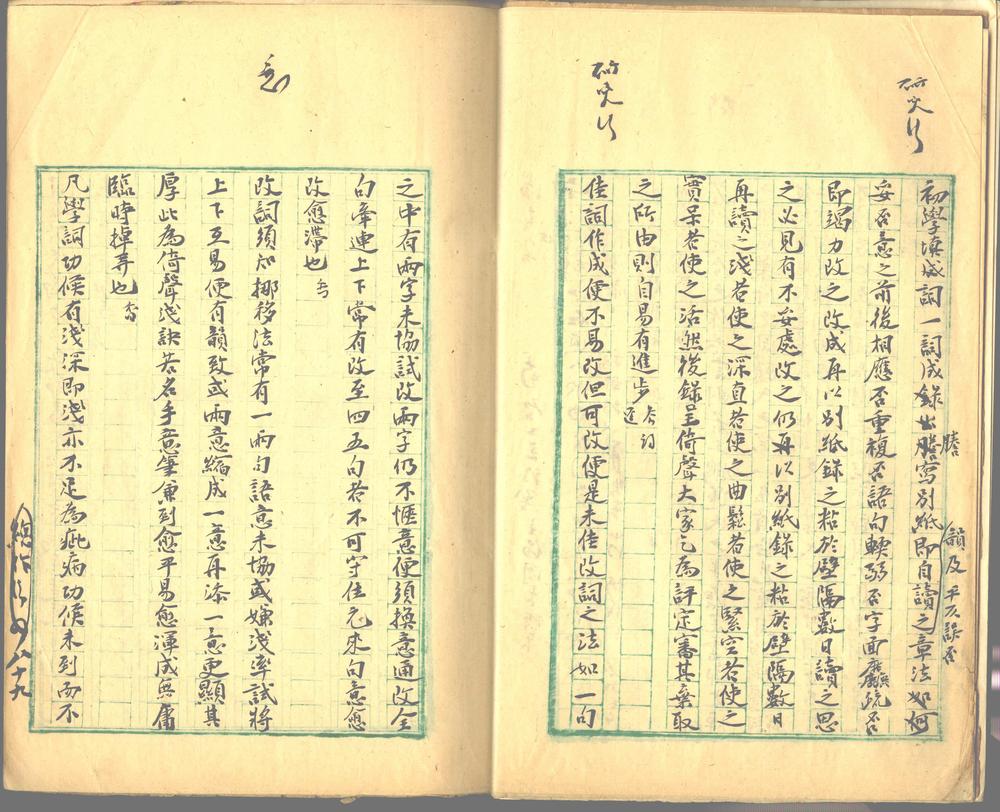 研究
初學填成詞一詞成錄出謄寫別紙即自讀之章法如何
謄
韻及平仄誤否
妥否意之前後相應否重複否語句輭弱否字面麤疏否
即竭力改之改成再以別紙錄之粘於壁隔數日讀之思
之必見有不妥處改之仍再以別紙錄之粘於壁隔數日
再讀之淺者使之深直者使之曲鬆者使之緊空者使之
實呆者使之活然後錄呈倚聲大家乞為評定審其棄取
之所由則自易有進步
研究
佳詞作成便不易改但可改便是未佳改詞之法如一句
之中有兩字未協試改兩字仍不愜意便須換意通改全
句牽連上下常有改至四五句者不可守住元來句意愈
改愈滯也
改詞須知挪移法常有一兩句語意未協或嫌淺率試將
上下互易便有韻致或兩意縮成一意再添一意更顯其
厚此為倚聲淺訣若名手意筆兼到愈平易愈渾成無庸
臨時掉弄也
凡學詞功候有淺深即淺亦不足為疵病功候未到而不
八十九